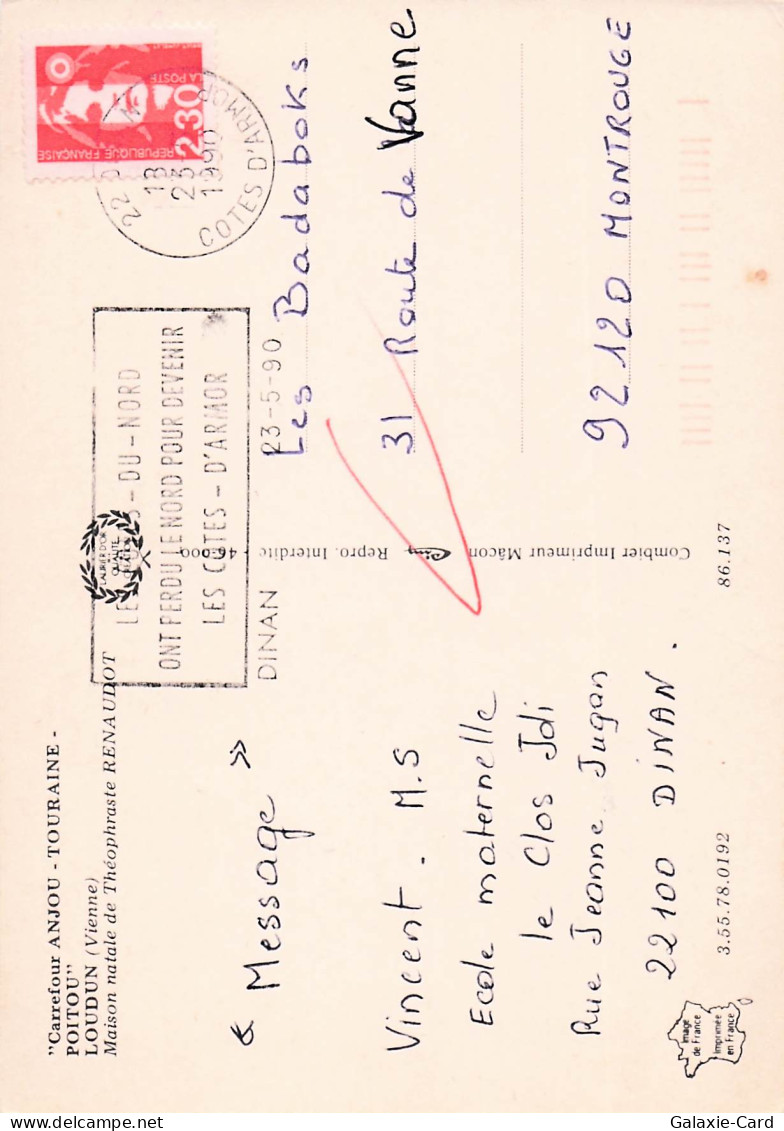 "Carrefour ANJOU - TOURAINE -
POITOU"
LOUDUN (Vienne)
Maison natale de Théophraste RENAUDOT
« Message »
Vincent. M.S
Ecole maternelle
le Clos Jdi
Rue Jeanne Jugan
22100 DINAN.
3.55.78.0192
86.137
Image
de France
Imprimée
en France
LAURIER D'OR
QUALITE
Combier Imprimeur Mâcon
Repro. Interdite - 46.000
DINAN 23-5-90
DU - NORD
ONT PERDU LE NORD POUR DEVENIR
LES COTES - D'ARMOR
22
18
23
1990
COTES D'ARMOR
REPUBLIQUE FRANÇAISE
2,30
LA POSTE
Les Badaboks
31 Route de Vanne
92120 MONTROUGE
Galaxie-Card